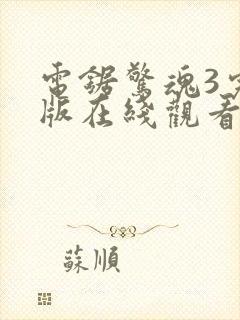 電鋸驚魂3
版在綫觀看
蘇順